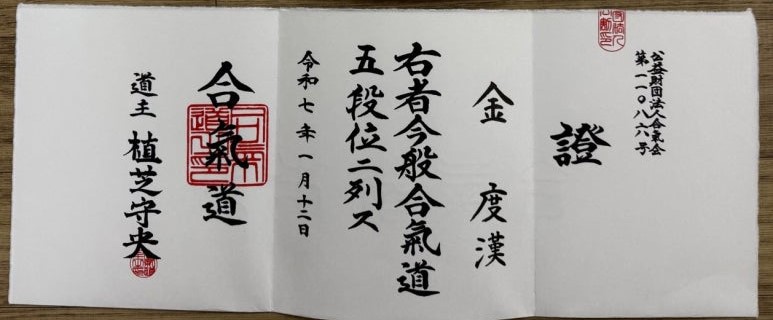 公益財団法人合氣会
第一一〇八六号
證
金度漢
右者今般合氣道
五段位ニ列ス
令和七年一月十二日
合氣道
道主 植芝守央